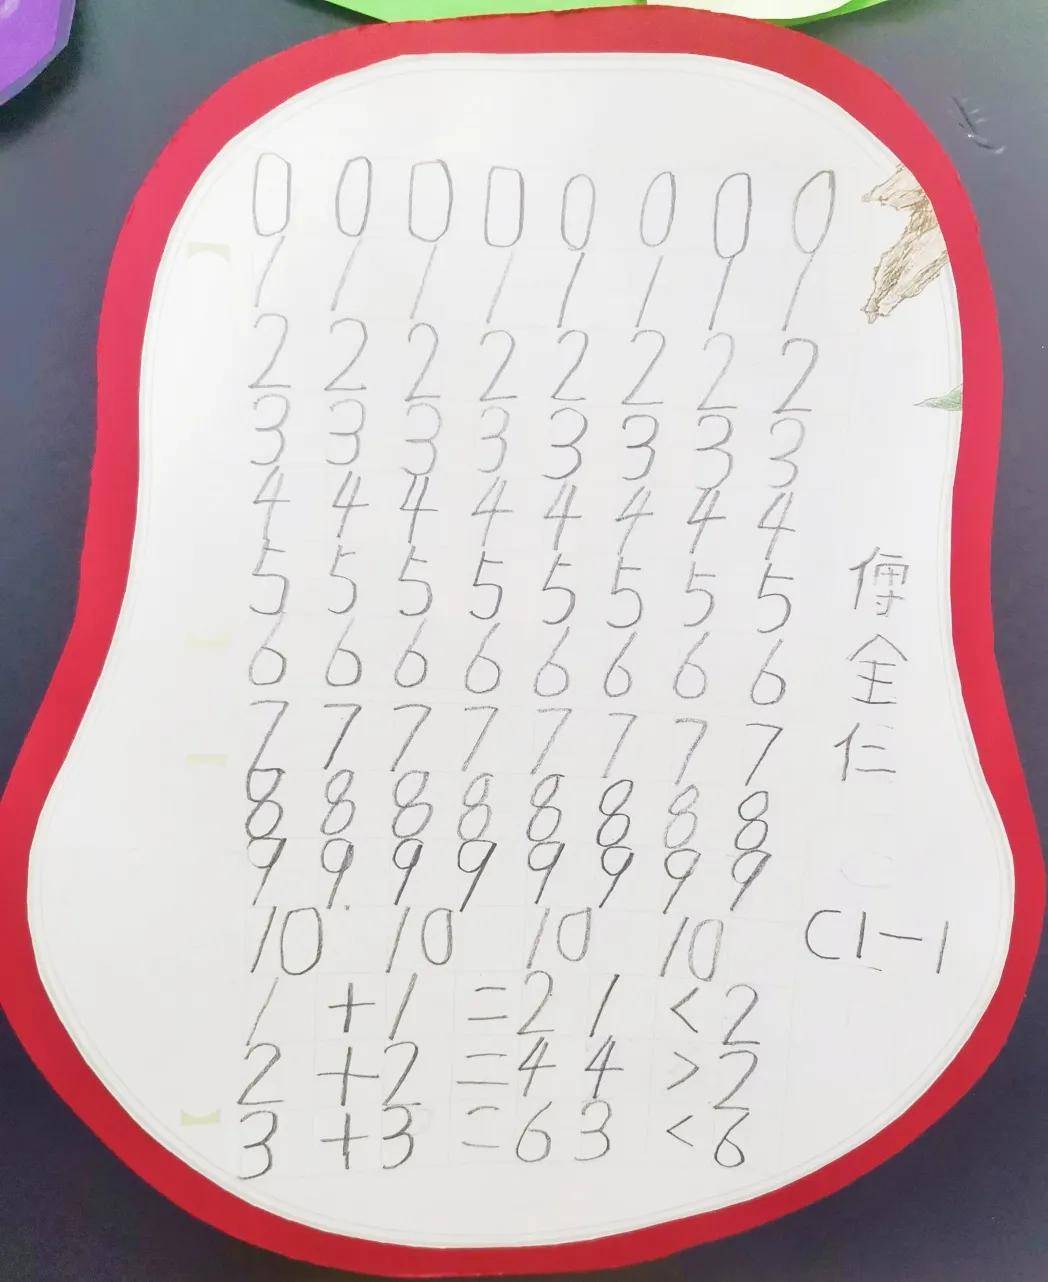 0 0 0 0 0 0 0 0
1 1 1 1 1 1 1 1
2 2 2 2 2 2 2 2
3 3 3 3 3 3 3 3
4 4 4 4 4 4 4 4
5 5 5 5 5 5 5 5
6 6 6 6 6 6 6 6
7 7 7 7 7 7 7 7
8 8 8 8 8 8 8 8
9 9 9 9 9 9 9 9
10 10 10 10
1 + 1 = 2 1 < 2
2 + 2 = 4 4 > 2
3 + 3 = 6 3 < 6
全仁
C1-1